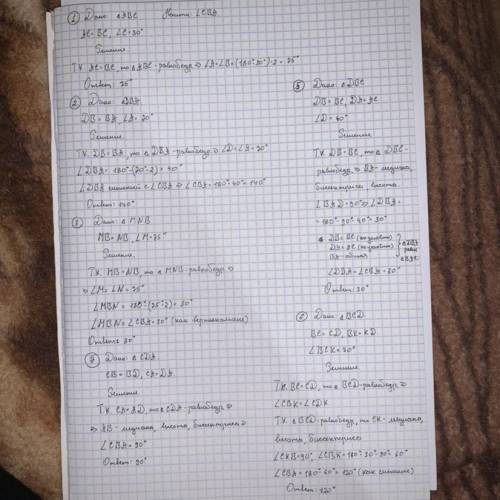 ① Дано: △ABC Найти: ∠CBA
AC = BC, ∠C = 30°
Решение
Т.К. AC = BC, то △ABC - равнобедр ⇒ ∠A = ∠B = (180° - 30°) : 2 = 75°
Ответ: 75°
② Дано: △DBA
DB = BA, ∠A = 70°
Решение
Т.К. DB = BA, то △DBA - равнобедр ⇒ ∠D = ∠A = 70°
∠DBA = 180° - (70° · 2) = 40°
∠DBA смежный с ∠CBA ⇒ ∠CBA = 180° - 40° = 140°
Ответ: 140°
Дано: △MNB
MB = NB, ∠M = 75°
Решение
Т.К. MB = NB, то △MNB - равнобедр ⇒
⇒ ∠M = ∠N = 75°
∠MBN = 180° - (75° · 2) = 30°
∠MBN = ∠CBA = 30° (как вертикальные)
Ответ: 30°
Дано: △CDA
CB = BD, CA = DA
Решение
Т.К. CA = AD, то △CDA - равнобедр ⇒
⇒ AB - медиана, высота, биссектриса ⇒
∠CBA = 90°
Ответ: 90°
⑤ Дано: △DBC
DB = BC, DA = AC
∠D = 60°
Решение
Т.К. DB = BC, то △DBC -
равнобедр ⇒ BA - медиана,
биссектриса, высота
∠BAD = 90° ⇒ ∠DBA =
= 180° - 90° - 60° = 30°
DB = BC (по условию)
DA = AC (по условию)
BA - общая
△DBA
равен
△CBA
∠DBA = ∠CBA = 30°
Ответ: 30°
⑥ Дано: △BCD
BC = CD, BK = KD
∠BCK = 30°
Решение
Т.К. BC = CD, то △BCD - равнобедр ⇒
∠CBK = ∠CDK
Т.К. △BCD - равнобедр, то CK - медиана,
высота, биссектриса
∠CKB = 90°, ∠CBK = 180° - 30° - 90° = 60°
∠CBA = 180° - 60° = 120° (как смежные)
Ответ: 120°